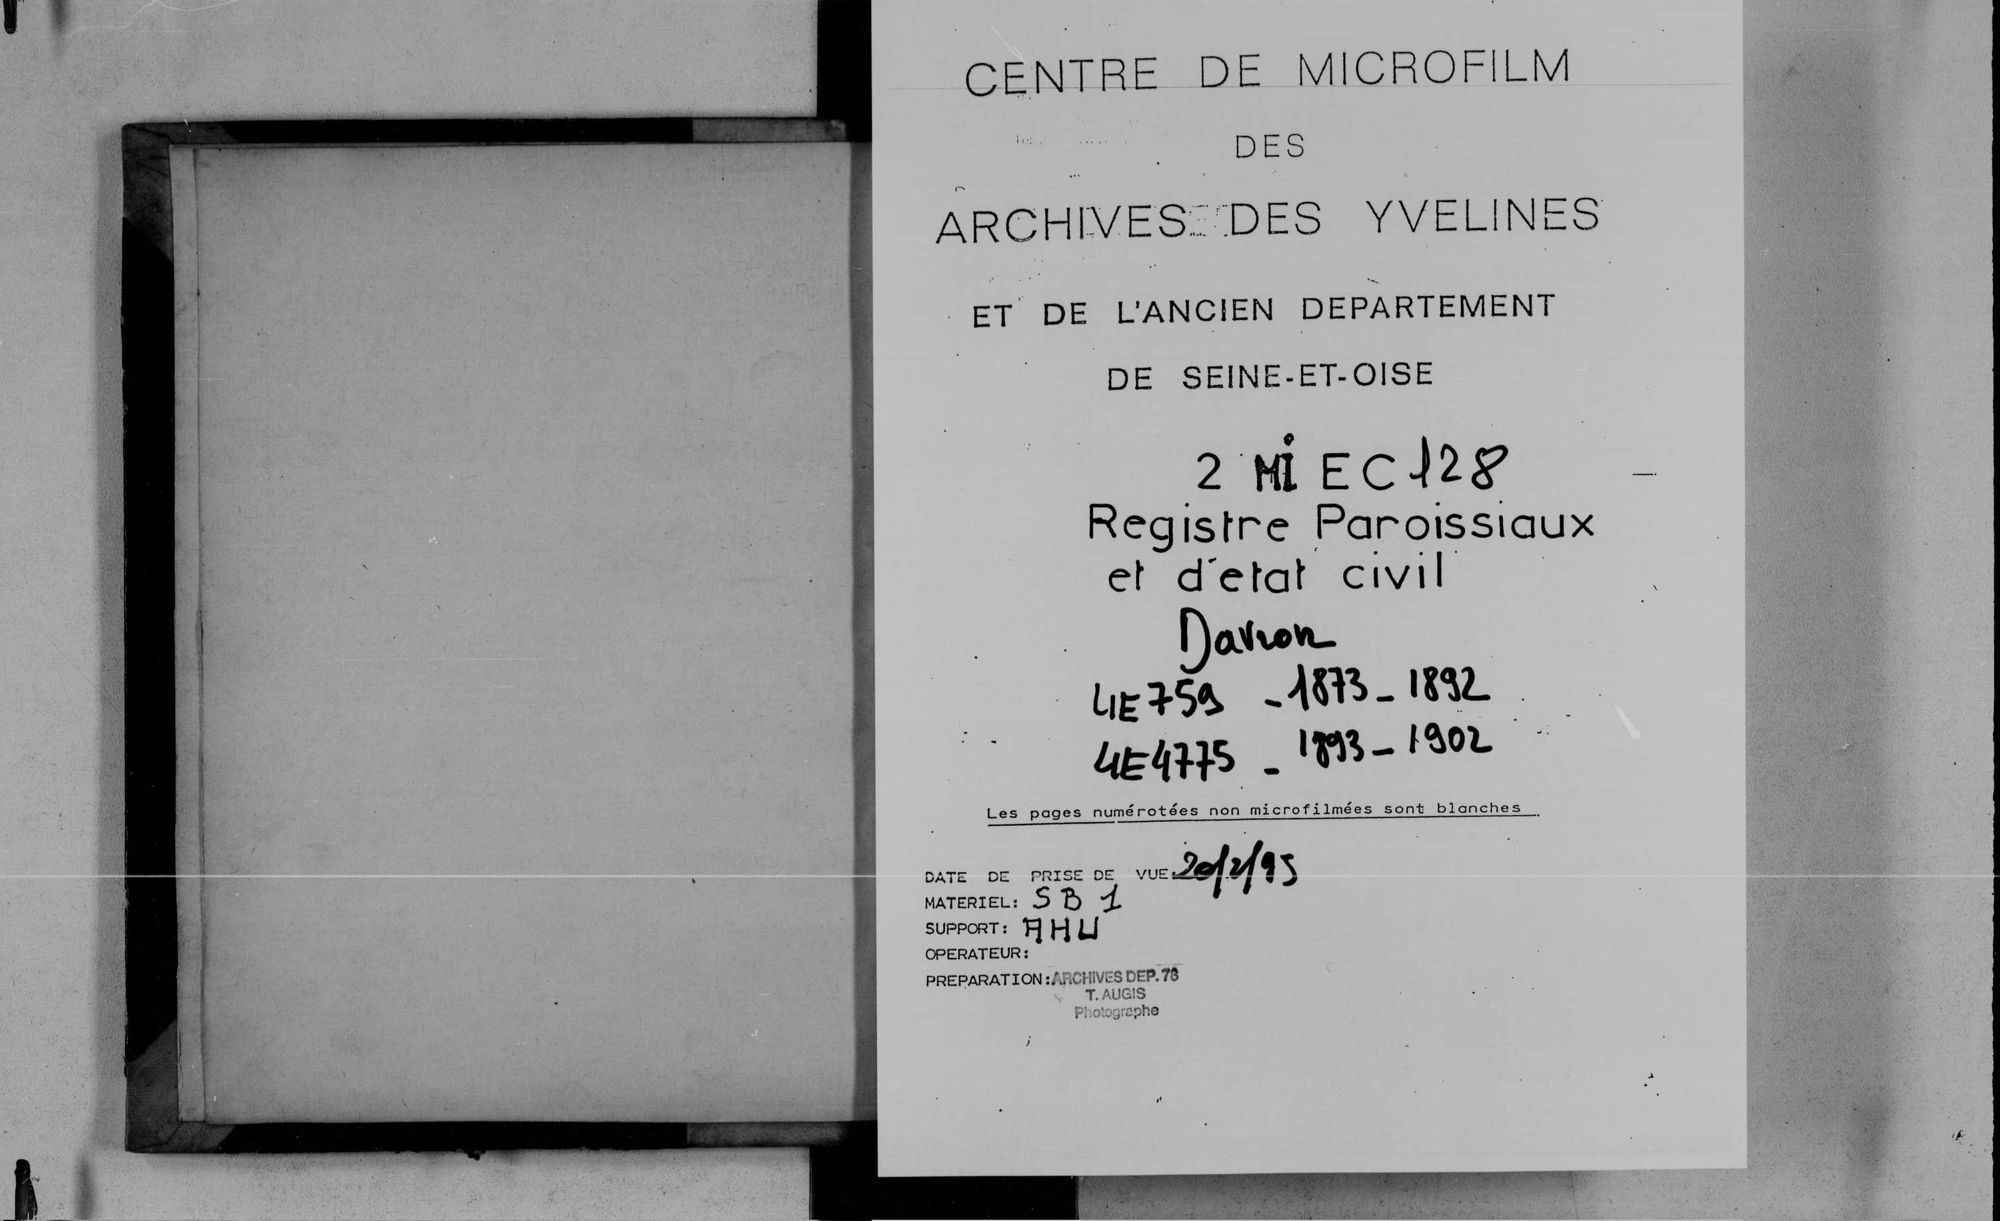 CENTRE DE MICROFILM
DES
ARCHIVES DES YVELINES
ET DE L'ANCIEN DEPARTEMENT
DE SEINE-ET-OISE
2 Mi EC 128
Registre Paroissiaux
et d'etat civil
Davron
4E759 - 1873 - 1892
4E4775 - 1893 - 1902
Les pages numérotées non microfilmées sont blanches
DATE DE PRISE DE VUE: 20/2/95
MATERIEL: SB 1
SUPPORT: AHU
OPERATEUR:
PREPARATION: ARCHIVES DEP. 78
T. AUGIS
Photographe